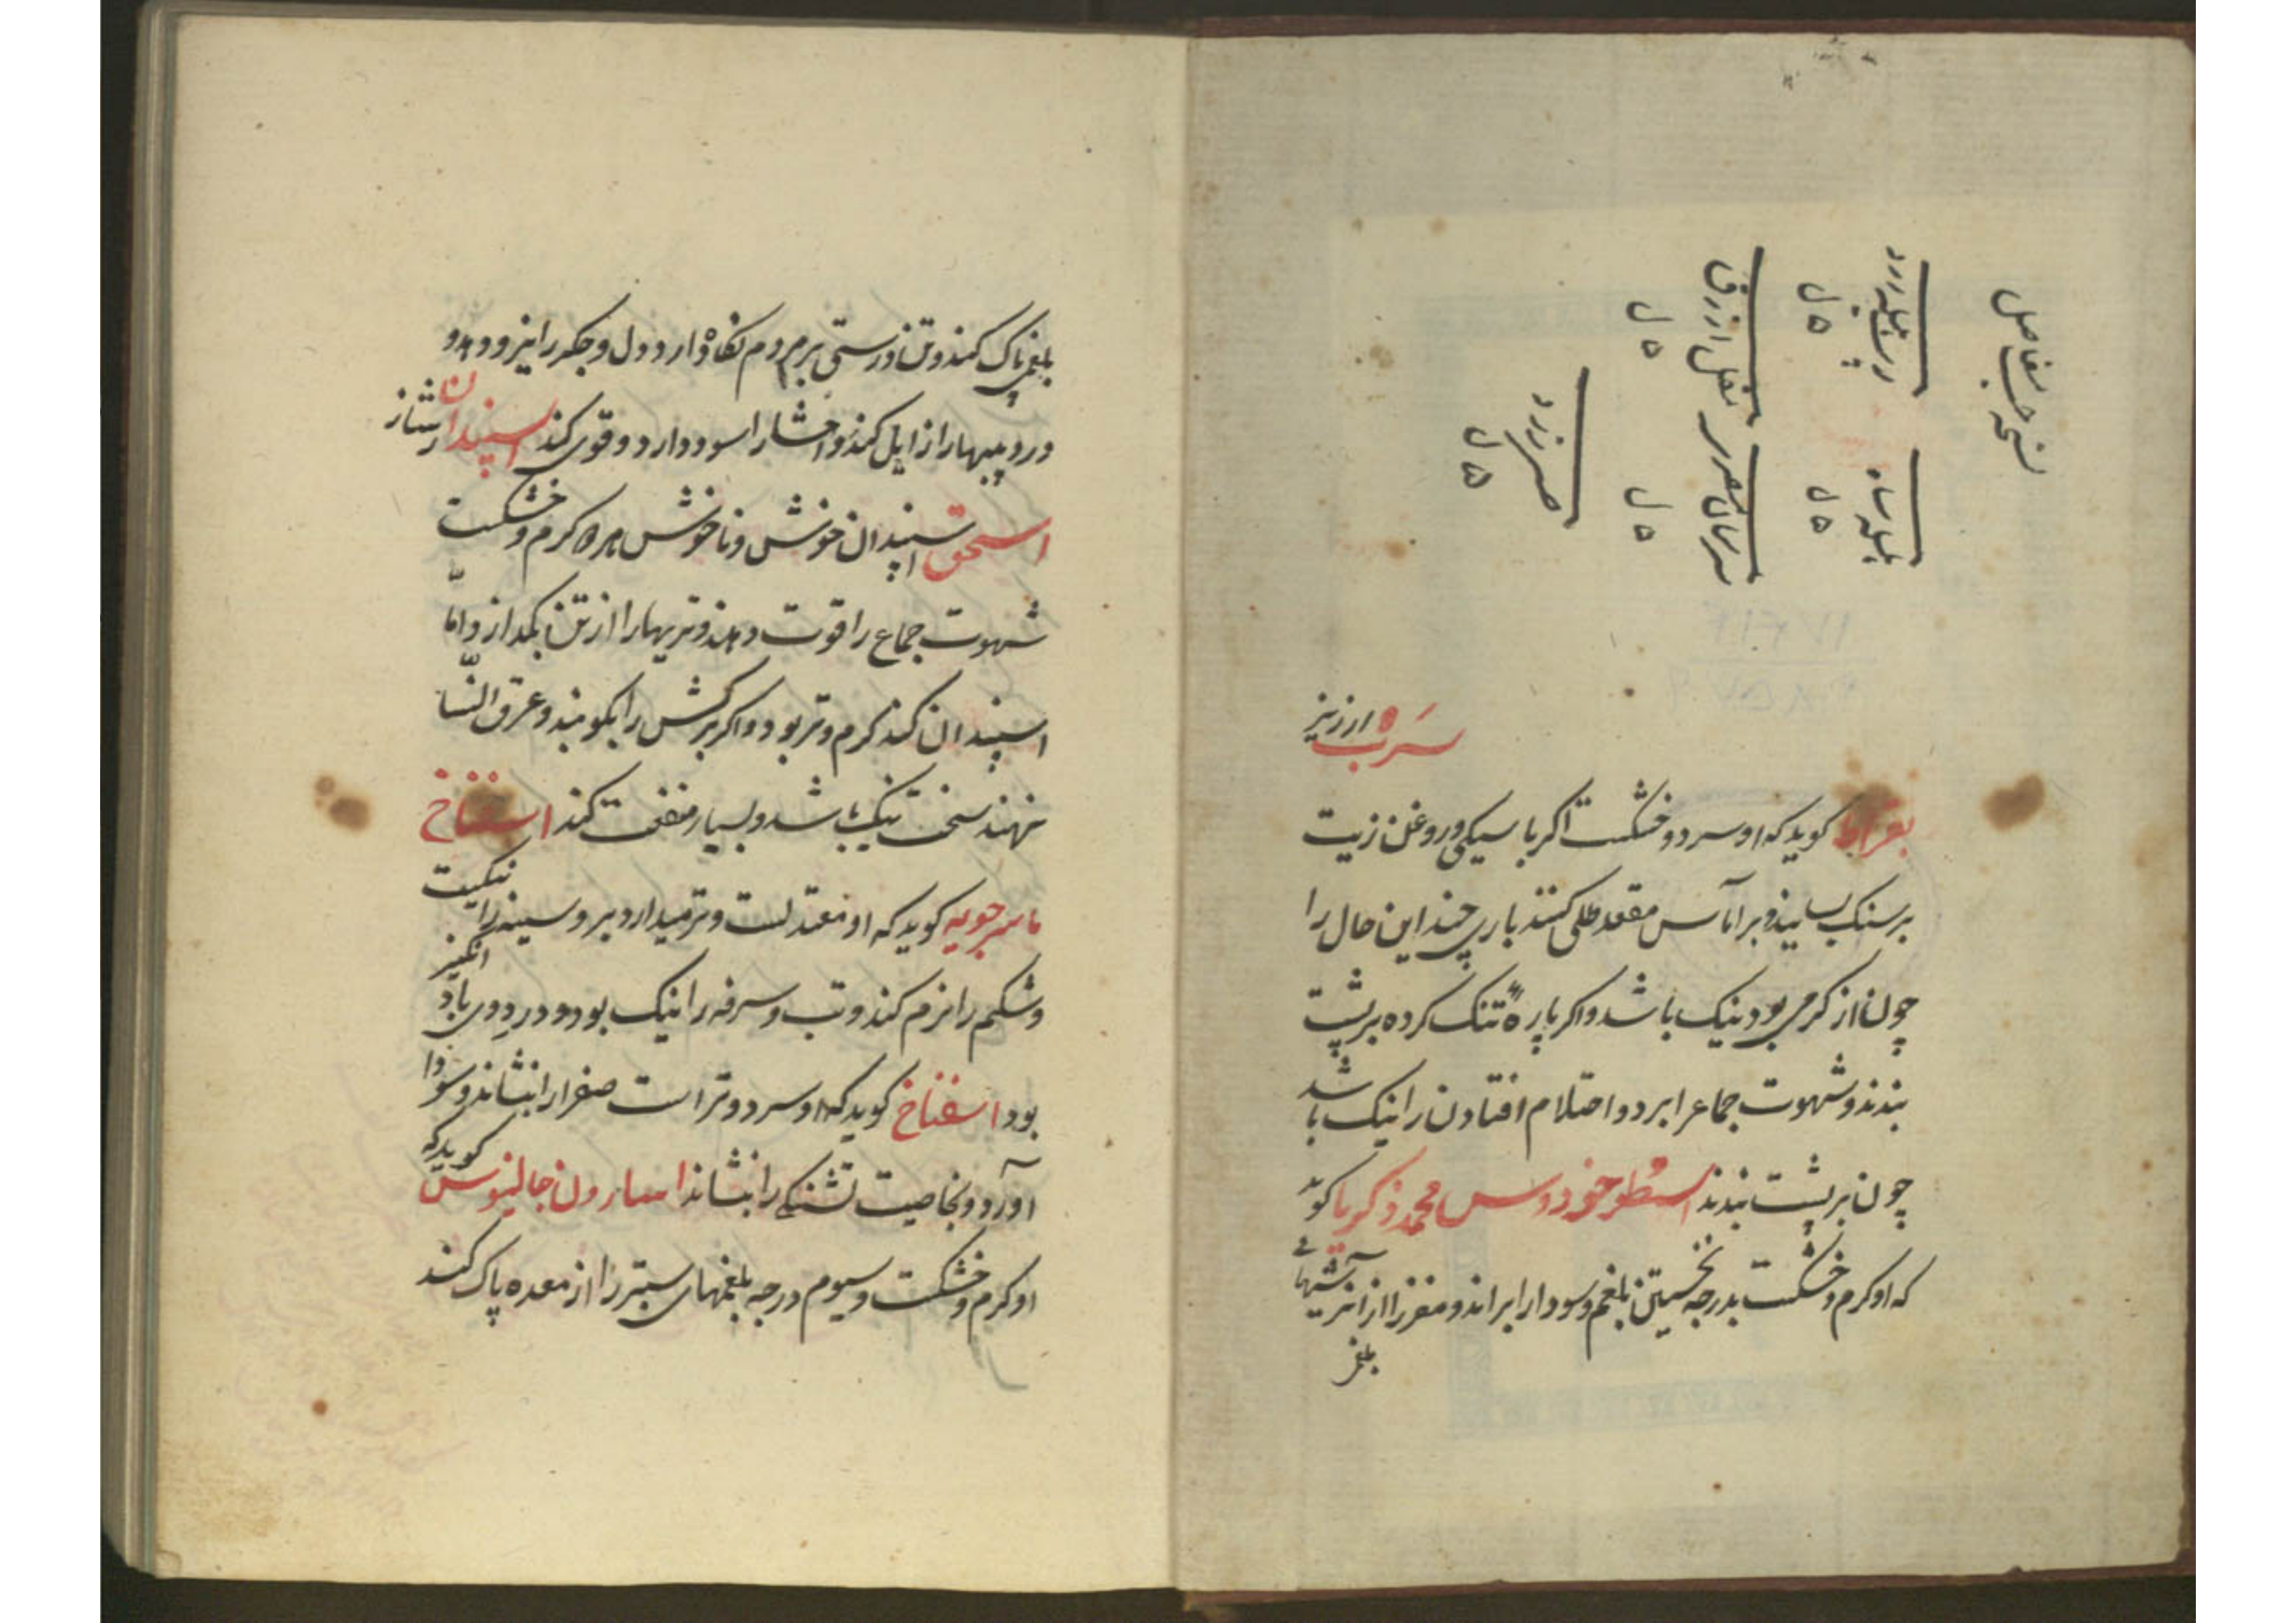 نسخه حب مفاصل
پوست هلیله زرد
ه ل
هلیله سیاه
ه ل
مقل ازرق
ه ل
ه ل
صبر زرد
ه ل
سرب ارزیز
بقراط کوید که او سرد و خشکست اکر با سیکی و روغن زیت
بر سنک بسایند و بر اماس مقعد طلی کنند باری چند این حال را
چون از کرمی بود نیک باشد و اکر پاره تنک کرده بر پشت
بندند و شهوت جماع را ببرد و احتلام افتادن را نیک باشد
چون بر پشت بندند اسطوخودوس محمد ذکریا کوید
که او کرم و خشکست بدرجه نخستین بلغم و سودا را براند و مغز را از تریهای
بلغمی
بلغمی پاک کند و تن درستی بر مردم نکاه دارد و دل و جکر را نیرو دهد و
درد پیها را زایل کند و احشا را سود دارد و قوی کند اسپندان
اسحق اسپندان خوش و ناخوش هر دو کرم و خشکست
شهوت جماع را قوت دهد و تریها را از تن بکدازد و امّا
اسپندان کنده کرم و تر بود و اکر برکش را بکوبند و بر عرق النّسا
نهند سخت نیک باشد و بسیار منفعت کند اسفناخ
ماسرجویه کوید که او معتدلست و تر میدارد بر و سینه را نیکست
و شکم را نرم کند و تب و سرفه را نیک بود و در وی باد انکیز
بود اسفناخ کوید که او سرد و تر است صفرا را بنشاند و سودا
آورد و بخاصیت تشنکی را بنشاند اسارون جالینوس کوید که
او کرم و خشکست و سیوم درجه بلغمهای ستبر را از معده پاک کند